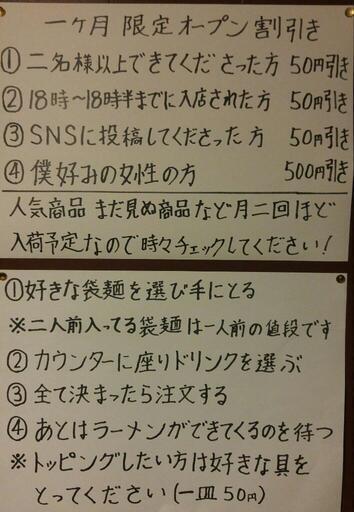 一ヶ月 限定オープン割引き
①二名様以上できてくださった方 50円引き
②18時〜18時半までに入店された方 50円引き
③SNSに投稿してくださった方 50円引き
④僕好みの女性の方 500円引き
人気商品 まだ見ぬ商品など月二回ほど
入荷予定なので時々チェックしてください!
①好きな袋麺を選び手にとる
※二人前入ってる袋麺は一人前の値段です
②カウンターに座りドリンクを選ぶ
③全て決まったら注文する
④あとはラーメンができてくるのを待つ
※トッピングしたい方は好きな具を
とってください(一皿50円)